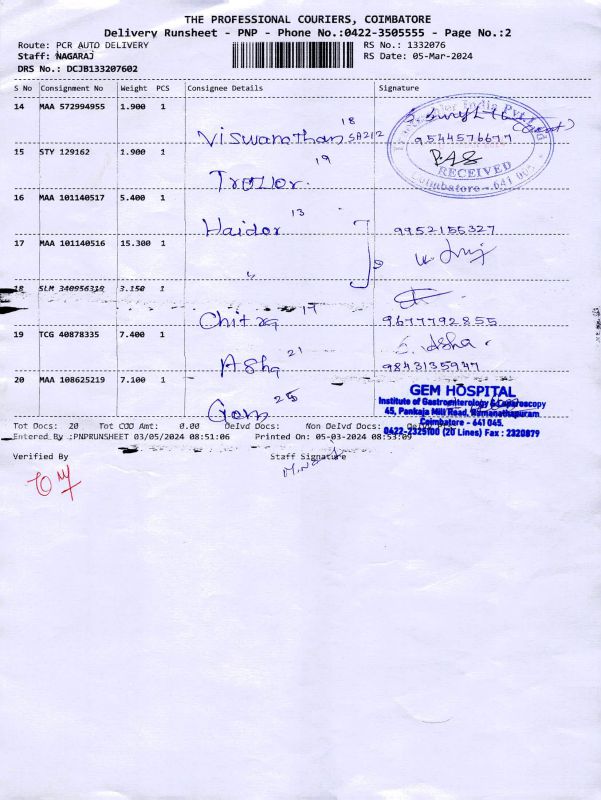 THE PROFESSIONAL COURIERS, COIMBATORE
Delivery Runsheet - PNP - Phone No.:0422-3505555 - Page No.:2
Route: PCR AUTO DELIVERY
RS No.: 1332076
Staff: NAGARAJ
RS Date: 05-Mar-2024
DRS No.: DCJB133207602
S No Consignment No Weight PCS Consignee Details Signature
14 MAA 572994955 1.900 1
Viswanathan 18 SA212
9544576677
15 STY 129162 1.900 1
19
RECEIVED
Coimbatore - 641 005
16 MAA 101140517 5.400 1
Haidor 13
9952155327
17 MAA 101140516 15.300 1
18 SLM 340956319 3.150 1
Chitra 17
9677792855
19 TCG 40878335 7.400 1
Asha 21
S. Asha.
9843135947
20 MAA 108625219 7.100 1
Gem 25
GEM HOSPITAL
Institute of Gastroenterology & Laparoscopy
45, Pankaja Mill Road, Ramanathapuram
Coimbatore - 641 045.
0422-2325100 (20 Lines) Fax : 2320879
Tot Docs: 20 Tot COD Amt: 0.00 Delvd Docs: Non Delvd Docs:
Entered By :PNPRUNSHEET 03/05/2024 08:51:06 Printed On: 05-03-2024 08:53:09
Verified By Staff Signature